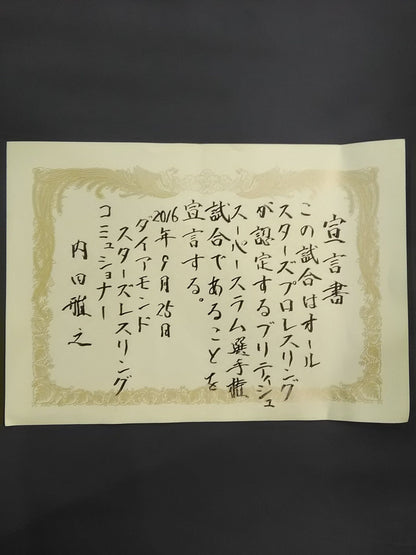 宣言書
この試合はオール
スターズプロレスリング
が認定するブリティシュ
スーパースラム選手権
試合であることを
宣言する。
2016年9月25日
ダイアモンド
スターズレスリング
コミュショナー
内田雅之